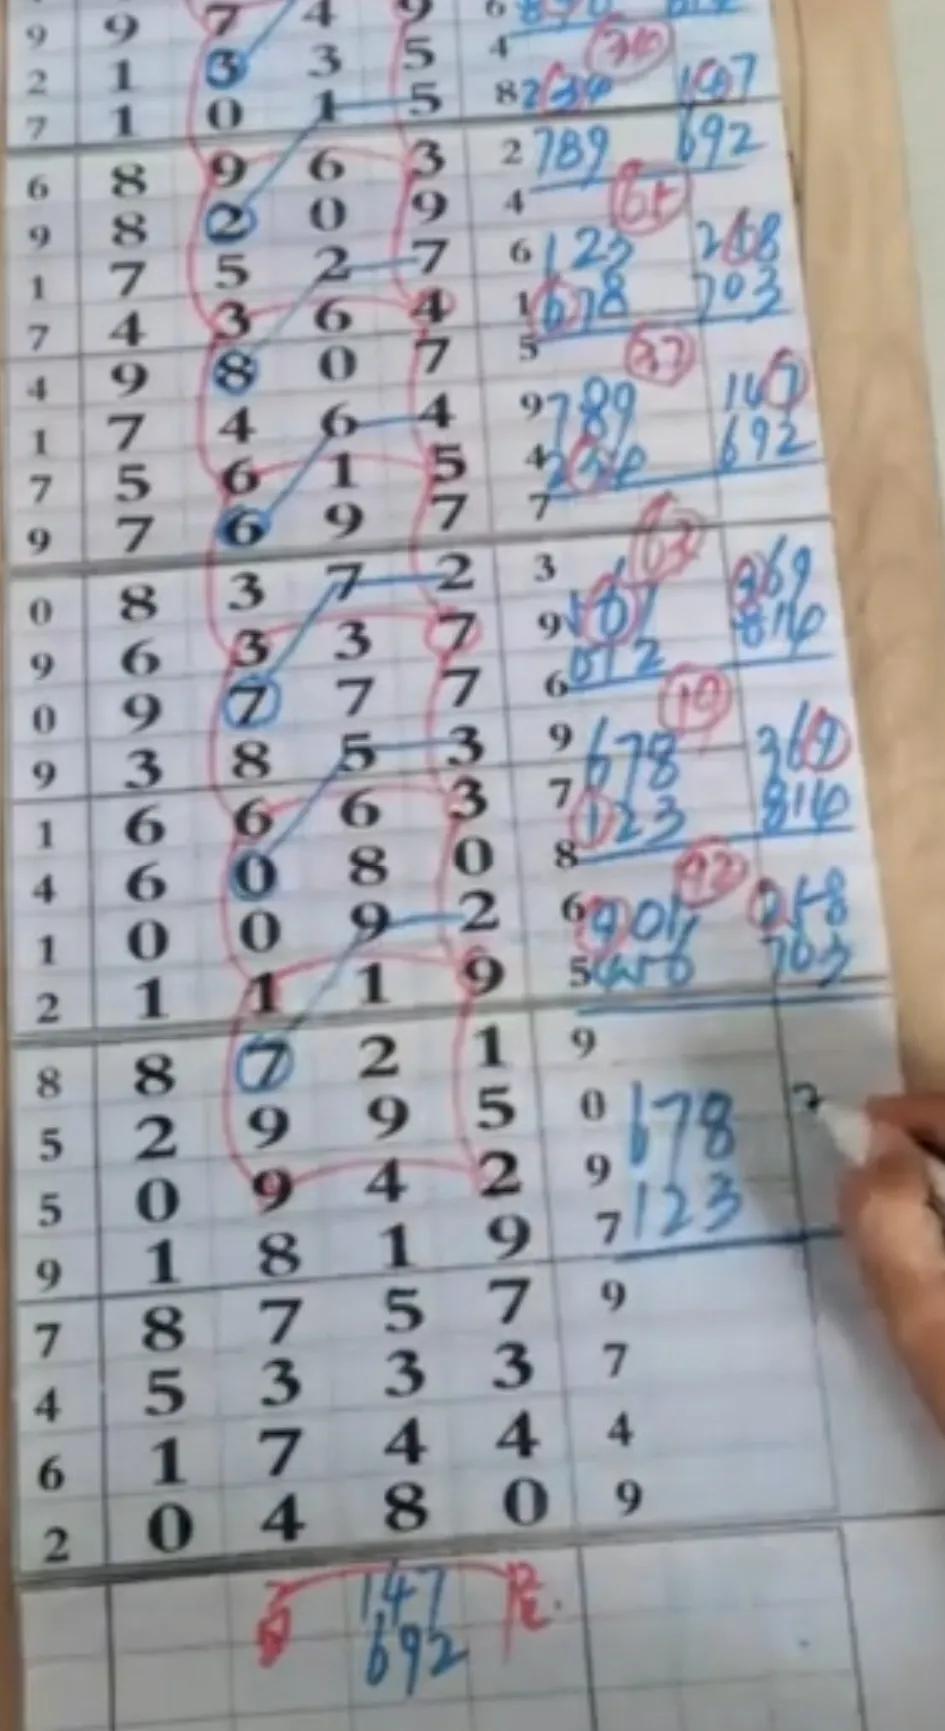 9 9 7 4 9 6
2 1 3 3 5 4
7 1 0 1 5 8
6 8 9 6 3 2 789 692
9 8 2 0 9 4
1 7 5 2 7 6 123 258
7 4 3 6 4 1 678 703
4 9 8 0 7 5 37
1 7 4 6 4 9 789 147
7 5 6 1 5 4 692
9 7 6 9 7 7 63
0 8 3 7 2 3 369
9 6 3 3 7 9 814
0 9 7 7 7 6 19
9 3 8 5 3 9 678 369
1 6 6 6 3 7 123 814
4 6 0 8 0 8 92
1 0 0 9 2 6 901 258
2 1 1 1 9 5 456 703
8 8 7 2 1 9
5 2 9 9 5 0 678
5 0 9 4 2 9
9 1 8 1 9 7 123
7 8 7 5 7 9
4 5 3 3 3 7
6 1 7 4 4 4
2 0 4 8 0 9
147
692